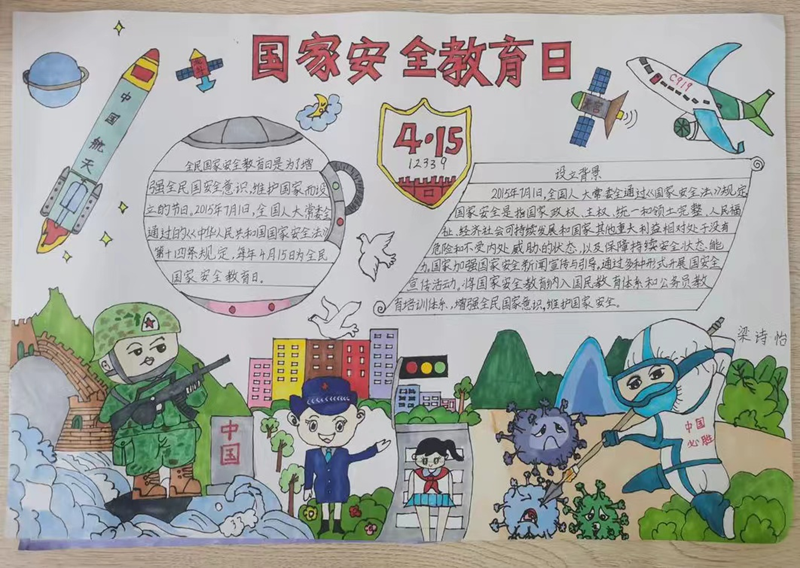 国家安全教育日
中国航天
C919
4·15
12339
全民国家安全教育日是为了增
强全民国安意识,维护国家而设
立的节日。2015年7月1日,全国人大常委会
通过的《中华人民共和国国家安全法》
第十四条规定,每年4月15日为全民
国家安全教育日。
设立背景
2015年7月1日,全国人大常委会通过《国家安全法》规定
国家安全是指国家政权、主权、统一和领土完整、人民福
祉、经济社会可持续发展和国家其他重大利益相对处于没有
危险和不受内处威胁的状态,以及保障持续安全状态能
力,国家加强国家安全新闻宣传与引导,通过多种形式开展国安全
宣传活动。将国家安全教育内入国民教育体系和公务员教
育培训体系,增强全民国家意识,维护国家安全。
梁诗怡
中国
中国
必胜